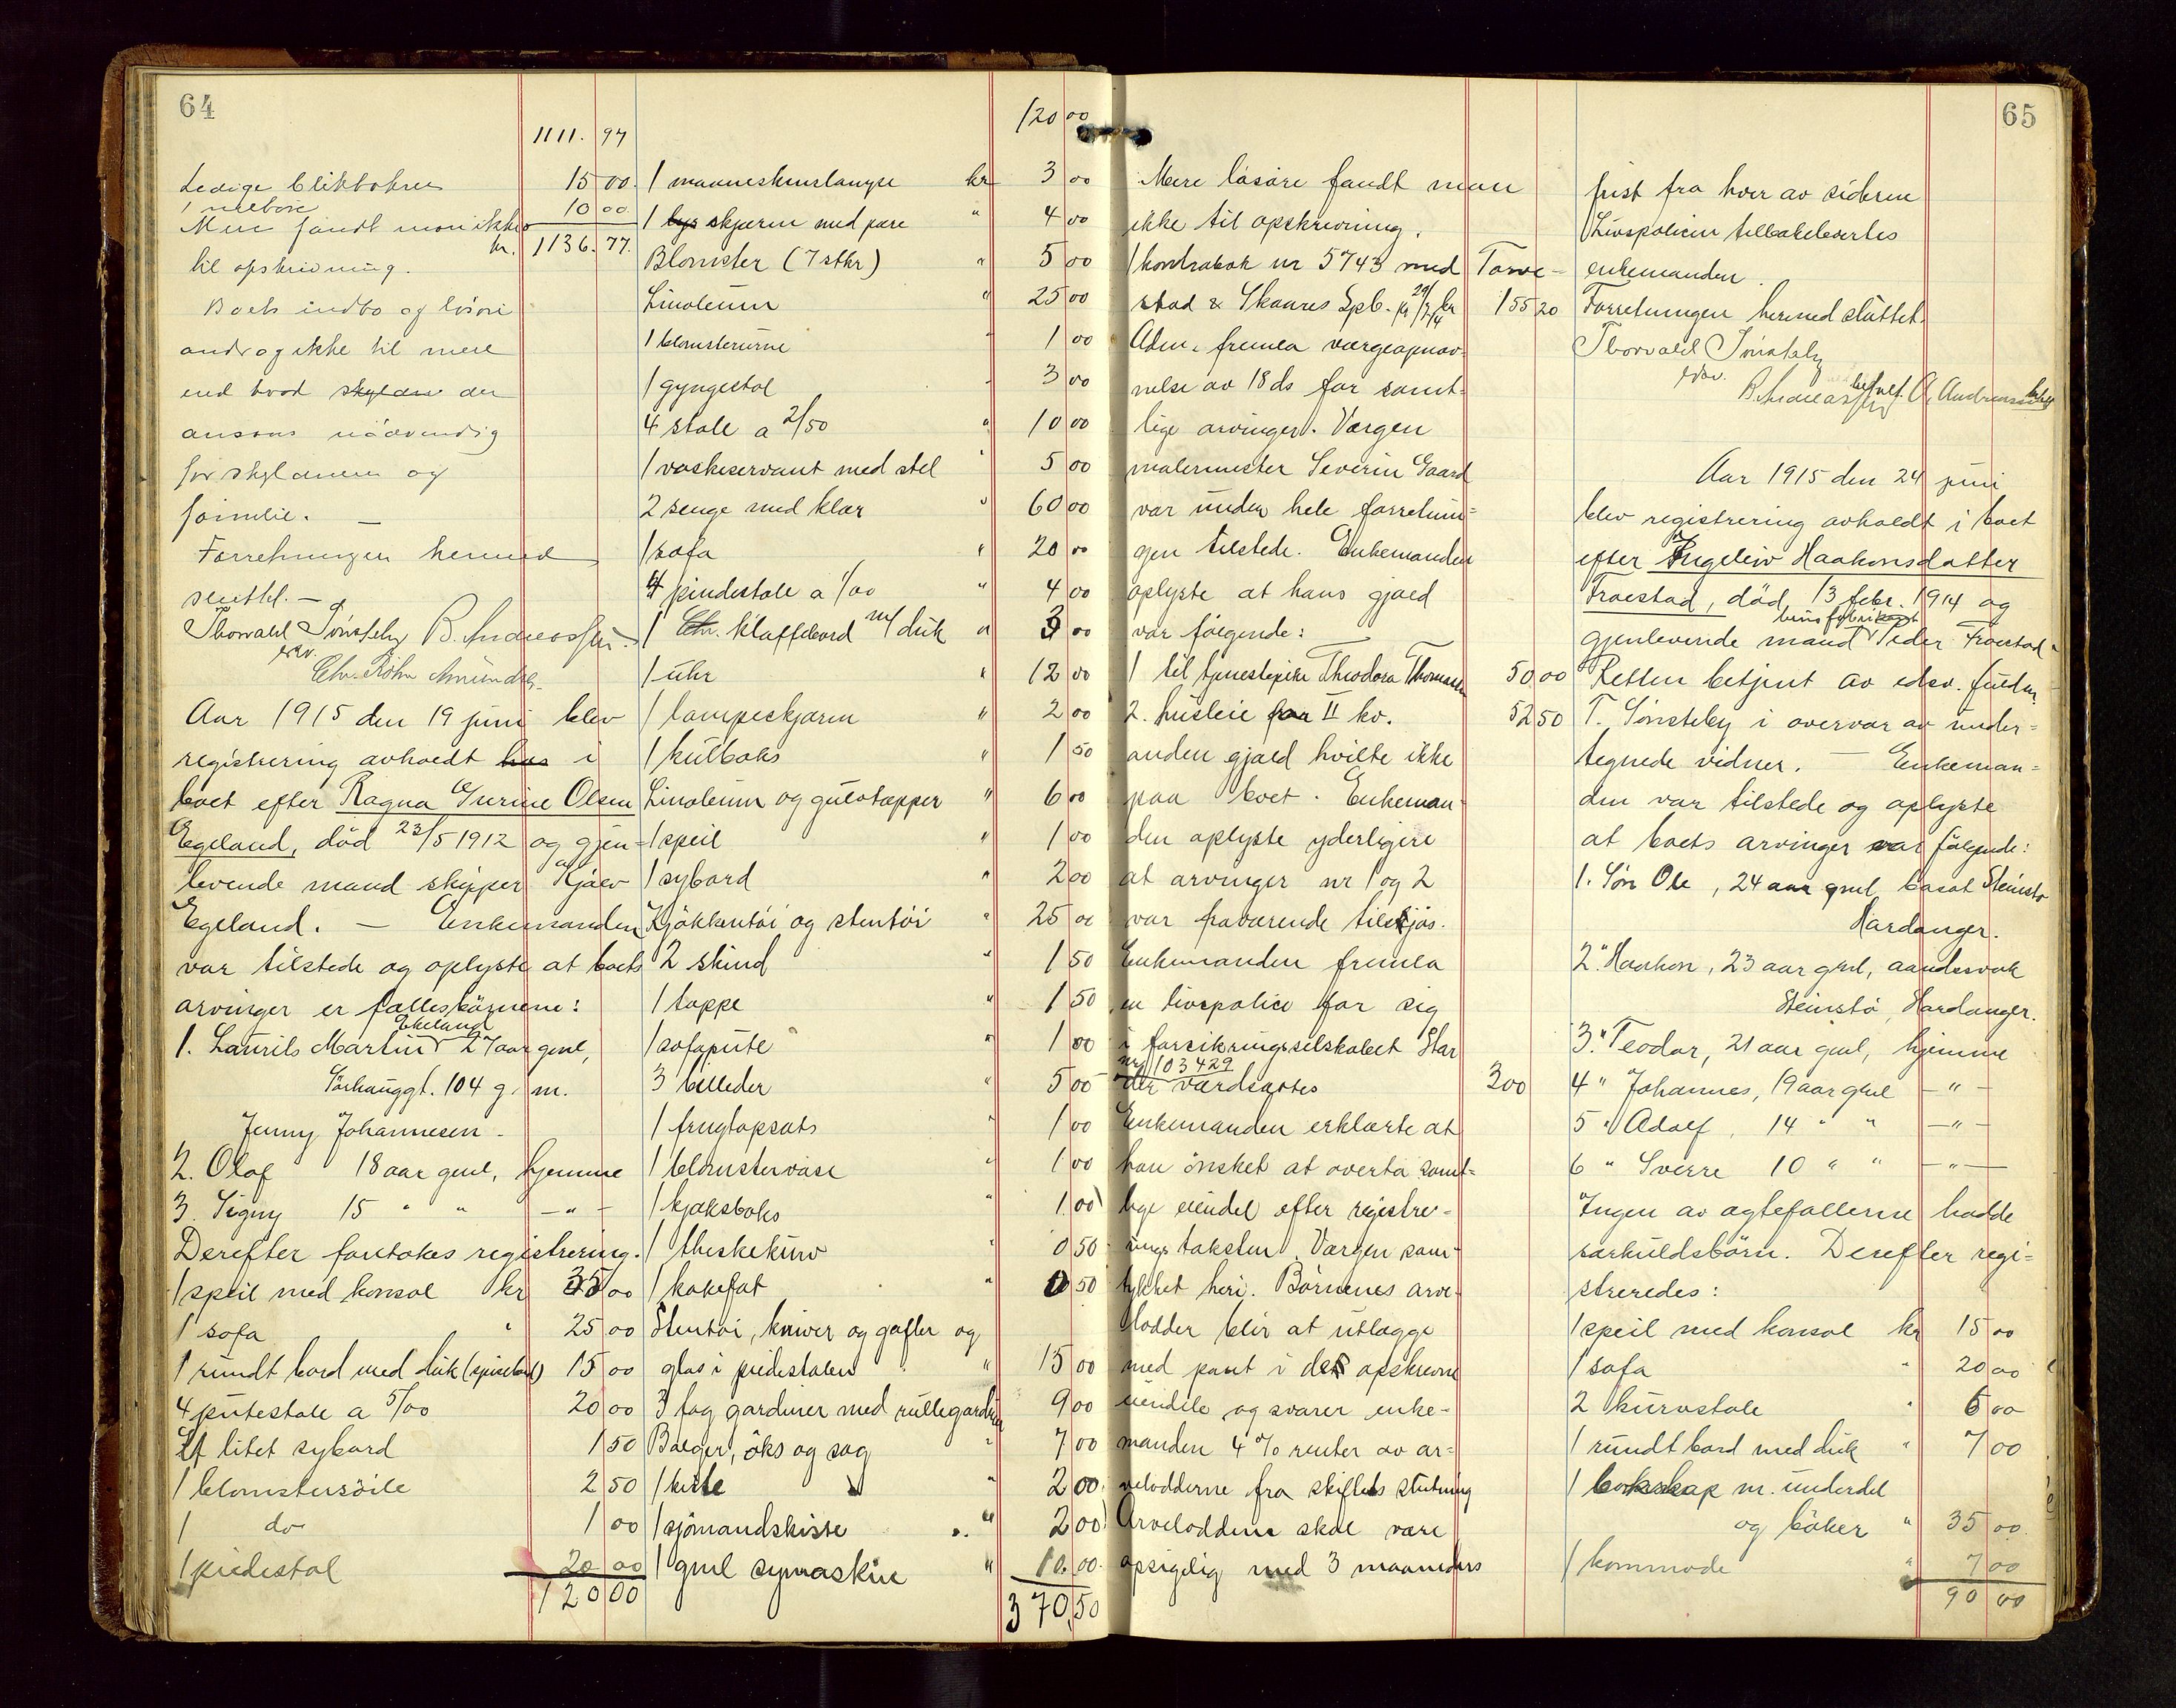 64
1111.97
Ledige blikbokser 15 00
1 10 00
Mere fandt man ikke kr. 1136.77.
til opskrivning.
Boets indbo og lösöre
androg ikke til mere
end hvad skylden der
ansaas nödvendig
for skyldneren og
familie. —
Forretningen hermed
sluttet. —
Thorvald Sönsteby B. Andreassen
edsv.
Aar 1915 den 19 juni blev
registrering avholdt hos i
boet efter Ragna Gurine Olsen
Egeland, död 23/5 1912 og gjen-
levende mand skipper Kjölv
Egeland. — Enkemanden
var tilstede og oplyste at boets
arvinger er fællesbörnene:
1. Laurits Martin Ekeland 27 aar gml,
Sörhauggt. 104 g. m.
Jenny Johannesen -
2. Olaf 18 aar gml, hjemme
3. Signy 15 " " — " —
Derefter foretokes registrering.
1 speil med konsol kr 35 00
1 sofa " 25 00
1 rundt bord med duk (spisebord) 15 00
4 putestole a 5/00 20 00
Et litet sybord 1 50
1 blomstersöile 2 50
1 do 1 00
1 piedestal 20 00
120 00
120 00
1 manneskinslampe kr 3 00
1 lys skjærm med pære " 4 00
Blomster (7 stkr) " 5 00
Linoleum " 25 00
1 blomsterurne " 1 00
1 gyngestol " 3 00
4 stole a 2/50 " 10 00
1 vaskeservant med stel " 5 00
2 senge med klær " 60 00
1 sofa " 20 00
4 pindestole a 1/00 " 4 00
1 klaffebord m/ duk " 3 00
1 uhr " 12 00
1 lampeskjærm " 2 00
1 kulboks " 1 50
Linoleum og gulvtæpper " 6 00
1 speil " 1 00
1 sybord " 2 00
Kjökkentöi og stentöi " 25 00
2 skind " 1 50
1 tæppe " 1 50
1 sofapute " 1 00
3 billeder " 5 00
1 frugtopsats " 1 00
1 blomstervase " 1 00
1 kjæksboks " 1 00
1 theskekurv " 0 50
1 kakefat " 0 50
Stentöi, kniver og gafler og
glas i piedestalen " 15 00
3 fag gardiner med rullegardiner 9 00
Bölger, öks og sag " 7 00
1 kiste " 2 00
1 sjömandskiste " 2 00
1 gml symaskin " 10.00
370,50
65
Mere lösöre fandt man
ikke til opskrivning.
1 kontrabok nr 5743 med Torve-
stad & Skaares Spb. kr 155 20
Adm. fremla værgeopnæv-
nelse av 18 ds for samt-
lige arvinger. Værgen
malermester Severin Gaard
var under hele forretnin-
gen tilstede. Enkemanden
oplyste at hans gjæld
var fölgende:
1 til tjenestepike Theodora Thomassen 50 00
2. husleie for II kv. 52 50
anden gjæld hvilte ikke
paa boet. Enkeman-
den oplyste yderligere
at arvinger nr 1 og 2
var fraværende tilsjös.
Enkemanden fremla
en livspolice for sig
i forsikringsselskabet Star
nr 103429
der værdsattes 300
Enkemanden erklærte at
han önsket at overta samt-
lige eiendel efter registre-
rings taksten. Værgen sam-
tykket heri. Börnenes arve-
lodder blir at utlægge
med pant i det opskrevne
eiendele og svarer enke-
manden 4 % renter av ar-
velodderne fra skiftets slutning
Arveloddene skal være
opsigelig med 3 maaneders
frist fra hver av siderne
Livspolicen tilbakeleveres
enkemanden.
Forretningen hermed sluttet.
Thorvald Sönsteby
edsv.
B. Andreassen
Aar 1915 den 24 juni
blev registrering avholdt i boet
efter Ingeleiv Haakonsdatter
Froestad, död 13 febr. 1914 og
gjenlevende mand Peder Froestad.
Retten betjent av edsv. fuldm.
T. Sönsteby i overvær av under-
tegnede vidner. — Enkeman-
den var tilstede og oplyste
at boets arvinger var fölgende:
1. Sön Ole, 24 aar gml, bosat Steinstö
Hardanger.
2." Haakon, 23 aar gml, aandssvak
Steinstö, Hardanger.
3." Teodor, 21 aar gml, hjemme
4 " Johannes, 19 aar gml — " —
5 " Adolf, 14 " " — " —
6 " Sverre 10 " " — " —
Ingen av egtefællerne hadde
særkuldsbörn. Derefter regi-
streredes:
1 speil med konsol kr 15 00
1 sofa " 20 00
2 kurvstole " 6 00
1 rundt bord med duk " 7 00
1 bokskap m. underdel
og böker " 35 00
1 kommode " 7 00
90 00